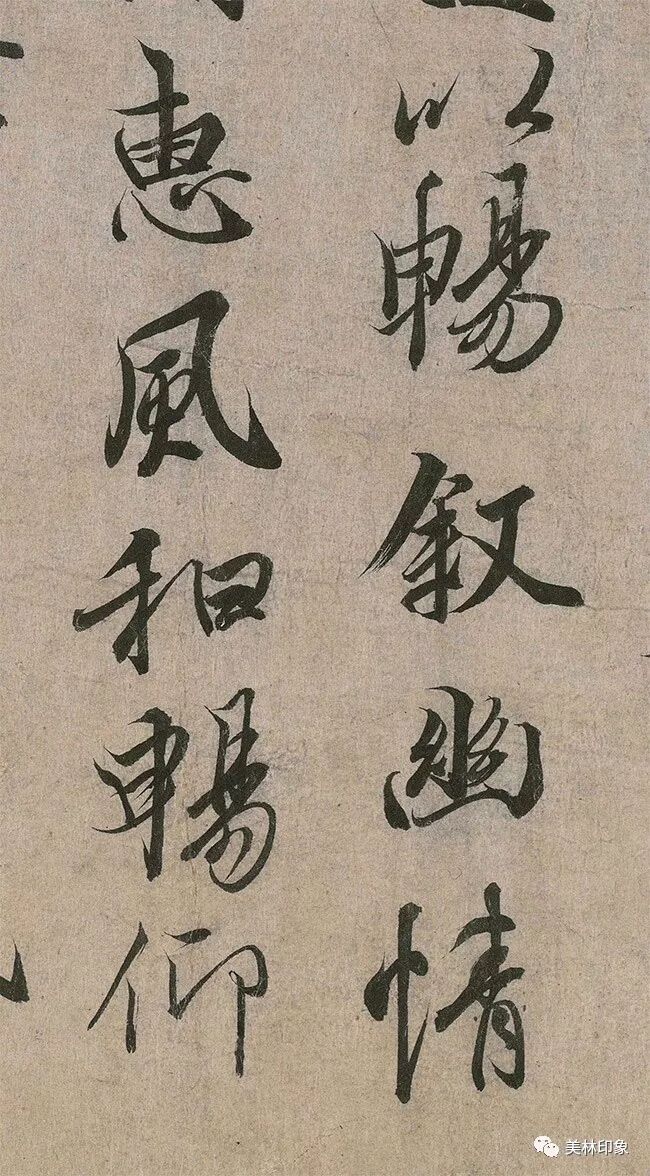 以暢敘幽情
惠風和暢仰
美林印象